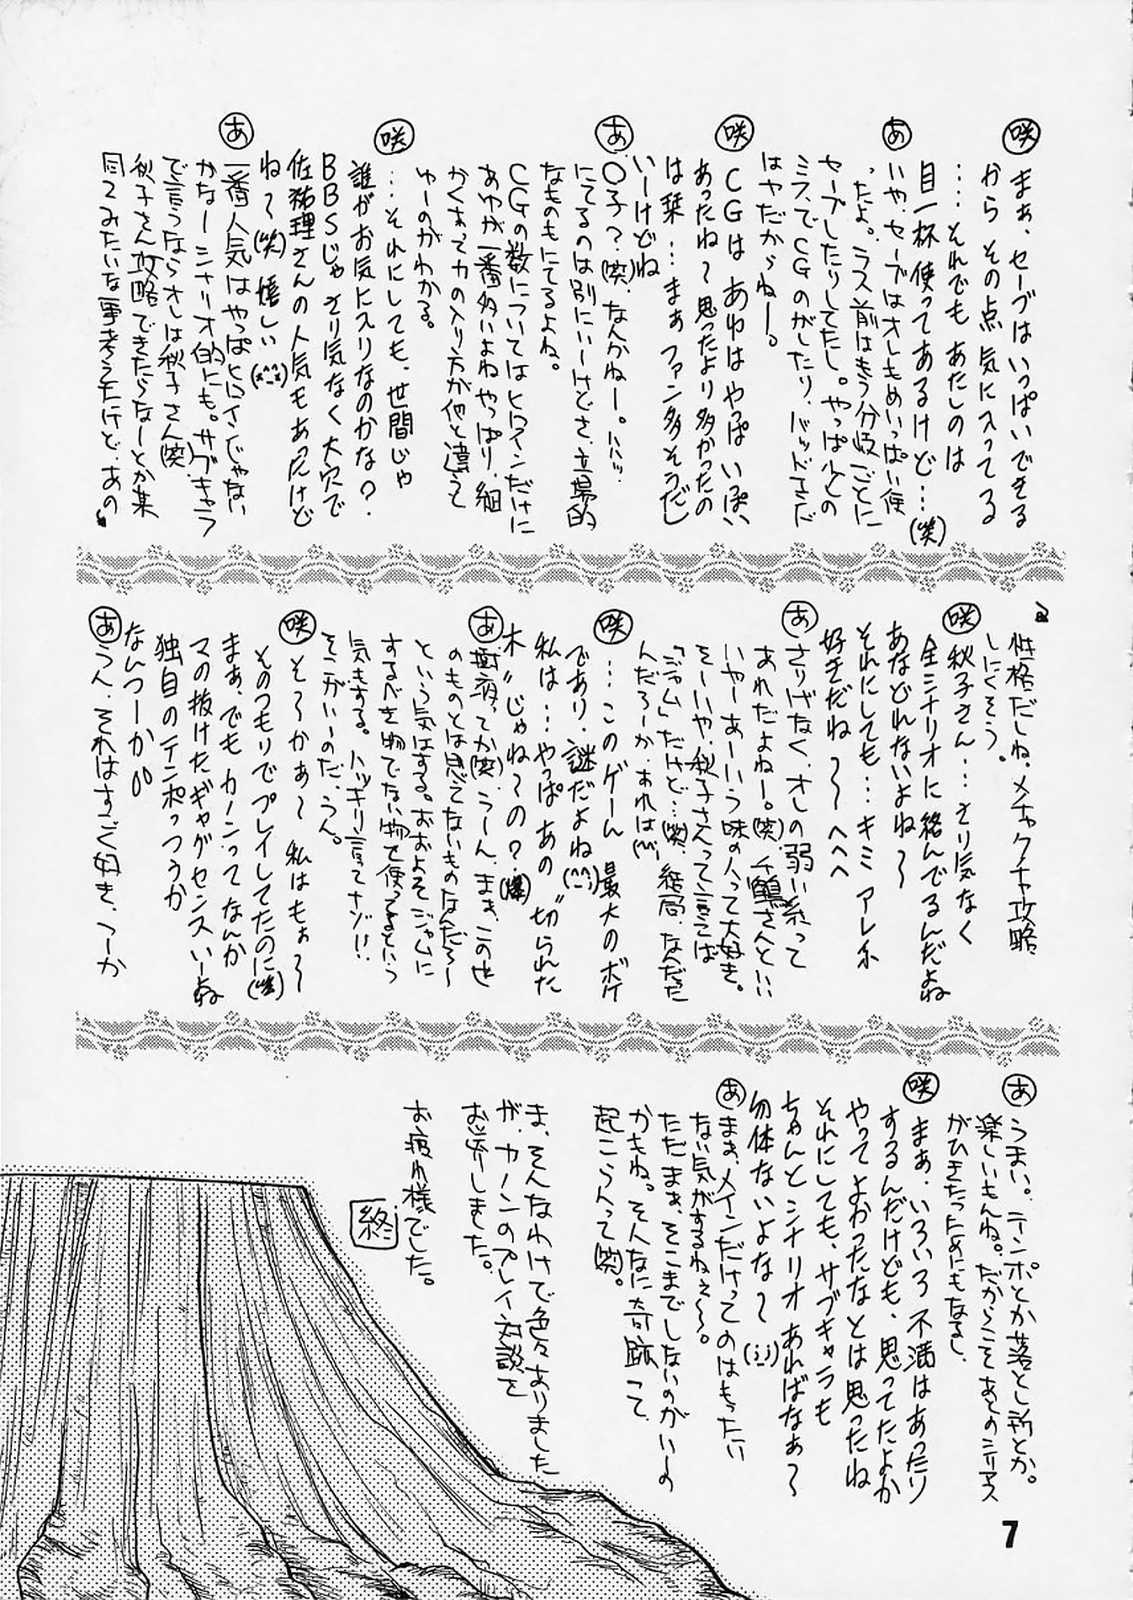 咲 まぁ、セーブはいっぱいできる
から その点 気に入ってる
…それでも あたしのは
目一杯使ってあるけど…(笑)
あ いや、セーブはオレもめいっぱい使
ったよ。ラス前はもう分岐ごとに
セーブしたりしてたし。やっぱ少しの
ミスでCGのがしたり、バッドエンド
はやだからねー。
咲 CGは あゆはやっぱ いっぱい
あったね〜 思ったより多かったの
は栞…まぁファン多そうだし
いーけどね
あ 〇子?(笑)なんかねー。ハハッ
にてるのは別にいーけどさ、立場的
なものもにてるよね。
CGの数についてはヒロインだけに
あゆが一番多いよねやっぱり。細
かくまで力の入り方が他と違う
ゆーのがわかる。
咲 …それにしても、世間じゃ
誰がお気に入りなのかな?
BBSじゃ さり気なく大穴で
佐祐理さんの人気もあったけど
ね〜(笑)嬉しい(x^_^x)
あ 一番人気はやっぱヒロインじゃない
かなーシナリオ的にも。サブキャラ
で言うならオレは秋子さん(笑)
秋子さん攻略できたらなーとか某
同てみたいな事考えたけど、あの
性格だしね。メチャクチャ攻略
しにくそう。
咲 秋子さん…さり気なく
全シナリオに絡んでるんだよね
あなどれないよね〜
それにしても…キミ アレ系
好きだね 〜〜 へへへ
あ さりげなく、オレの弱い系って
あれだよねー。(笑)千鶴さんといい
いやーあーいう味の人って大好き。
そーいや、秋子さんって言えば
「ジャム」だけど…(笑)結局、なんだった
んだろーか、あれは(^^;
咲 …このゲーム 最大のボケ
であり、謎だよね(^^;)
私は…やっぱあの“切られた
木”じゃねーの?(爆)
あ 樹液ってか(笑)うーん、まぁ、この世
のものとは思てないものなんだろー
という気はする。おおよそジャムに
するべき物でない物を使ってるという
気もする。ハッキリ言ってナゾ!!
そこがいーのだ、うん。
咲 そ〜かあ〜 私はもぉ〜
そのつもりでプレイしてたのに(笑)
まぁ、でも カノンってなんか
マの抜けたギャグセンスいーよね
独自のテンポっつうか
なんつーか
あ うん、それはすごく好き、つーか
あ うまい。テンポとか落とし所とか。
楽しいもんね。だからこそあとのシリアス
がひきたったためにもなるし
咲 まぁ、いろいろ不満はあったり
するんだけども、思ってたよか
やってよかったなとは思ったね
それにしても、サブキャラも
ちゃんとシナリオあればなぁ〜
勿体ないよな〜(;_;)
あ まぁ、メインだけってのはもったい
ない気がするねぇ〜。
ただまぁ、そこまでしないのがいーの
かもね。そんなに奇跡って、
起こらんって(笑)。
ま、そんなわけで色々ありました
が、カノンのプレイ対談を
お送りしました。
お疲れ様でした。
終
7